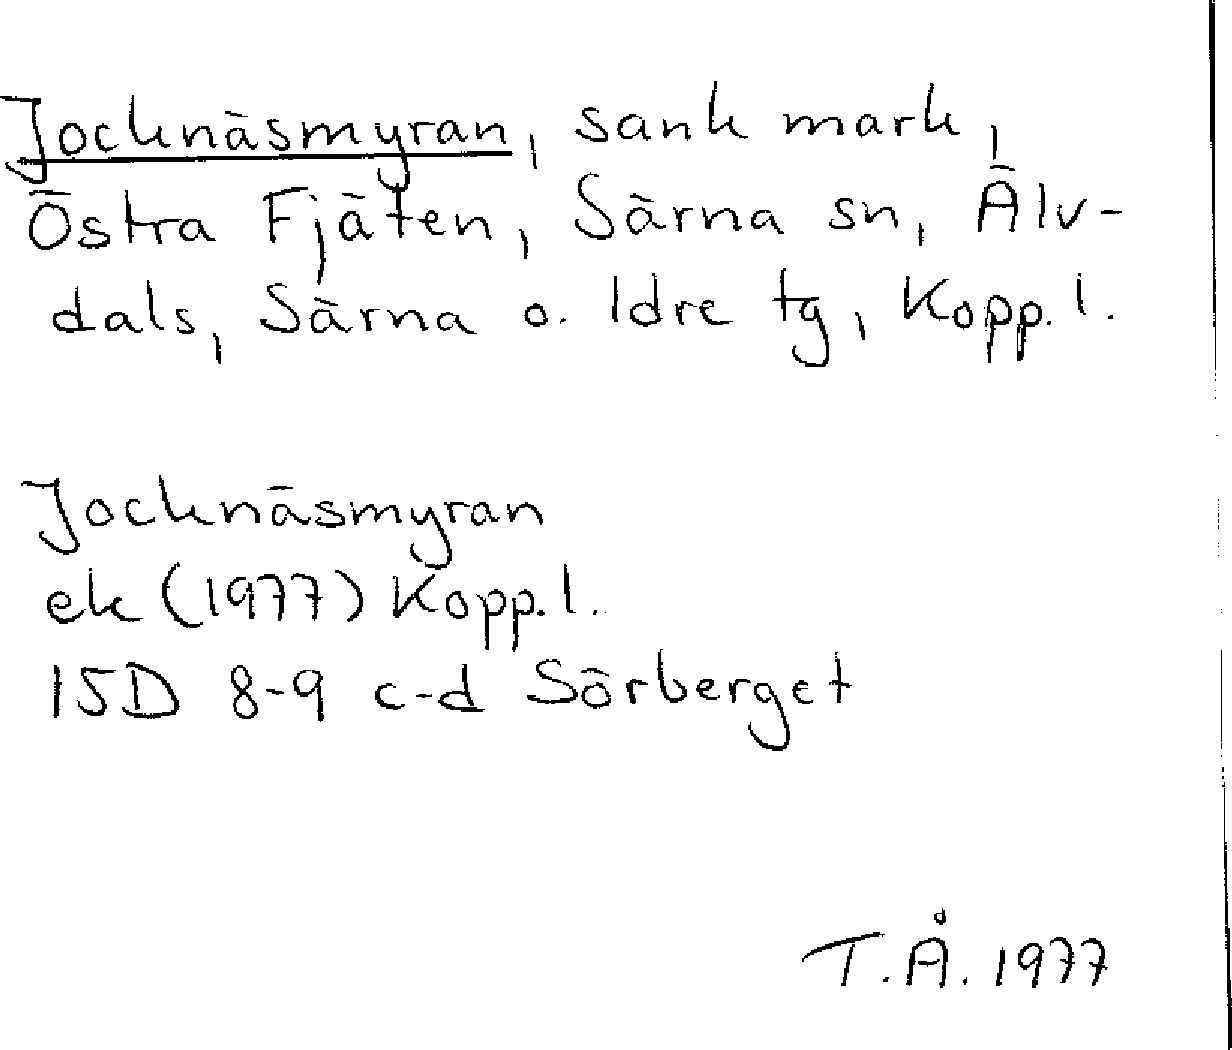 Jocknäsmyran, sank mark,
Östra Fjäten, Särna sn, Älv-
dals, Särna o. Idre tg, Kopp. l.
Jocknäsmyran
ek (1977) Kopp. l.
15D 8-9 c-d Sörberget
T.Å. 1977